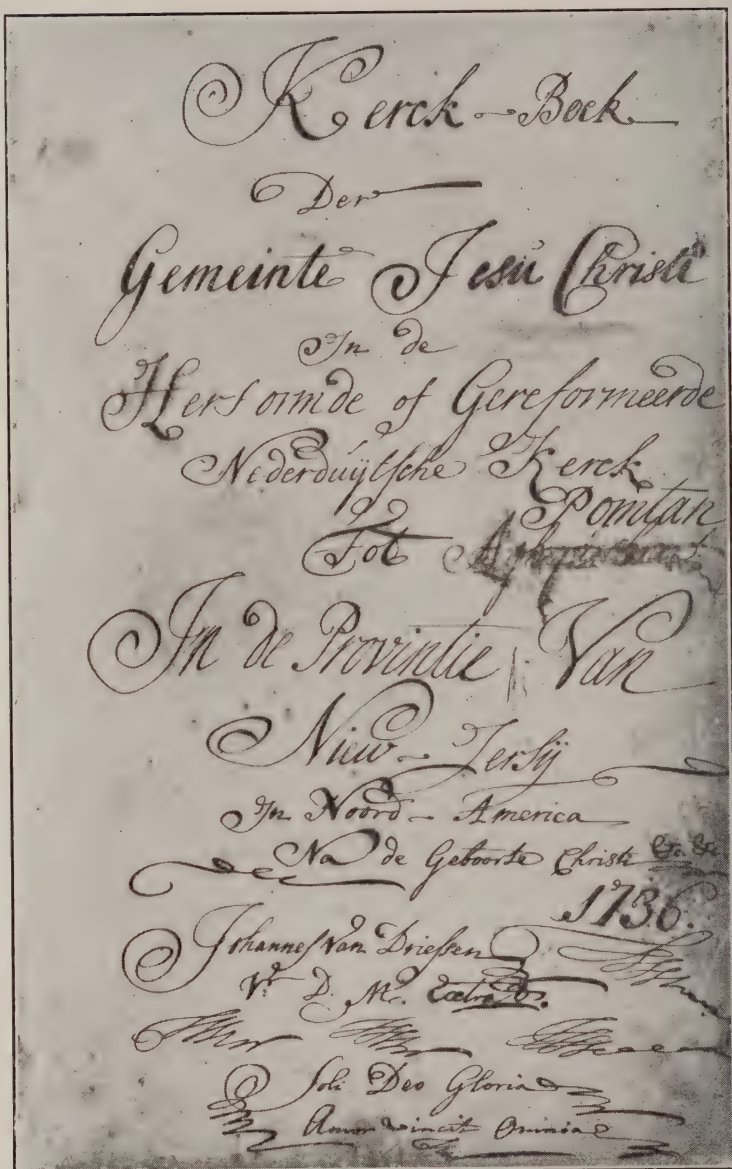 Kerck-Boek
Der
Gemeinte Jesu Christi
In de
Hersormde of Gereformeerde
Nederduÿtsche Kerck
Pomtan
Tot
In de Provintie Van
Nieuw-Jersÿ
In Noord-America
Na de Geboorte Christi &c. &c.
1736.
Johannes Van Driessen
V. D. M.
Soli Deo Gloria
Amor vincit Omnia